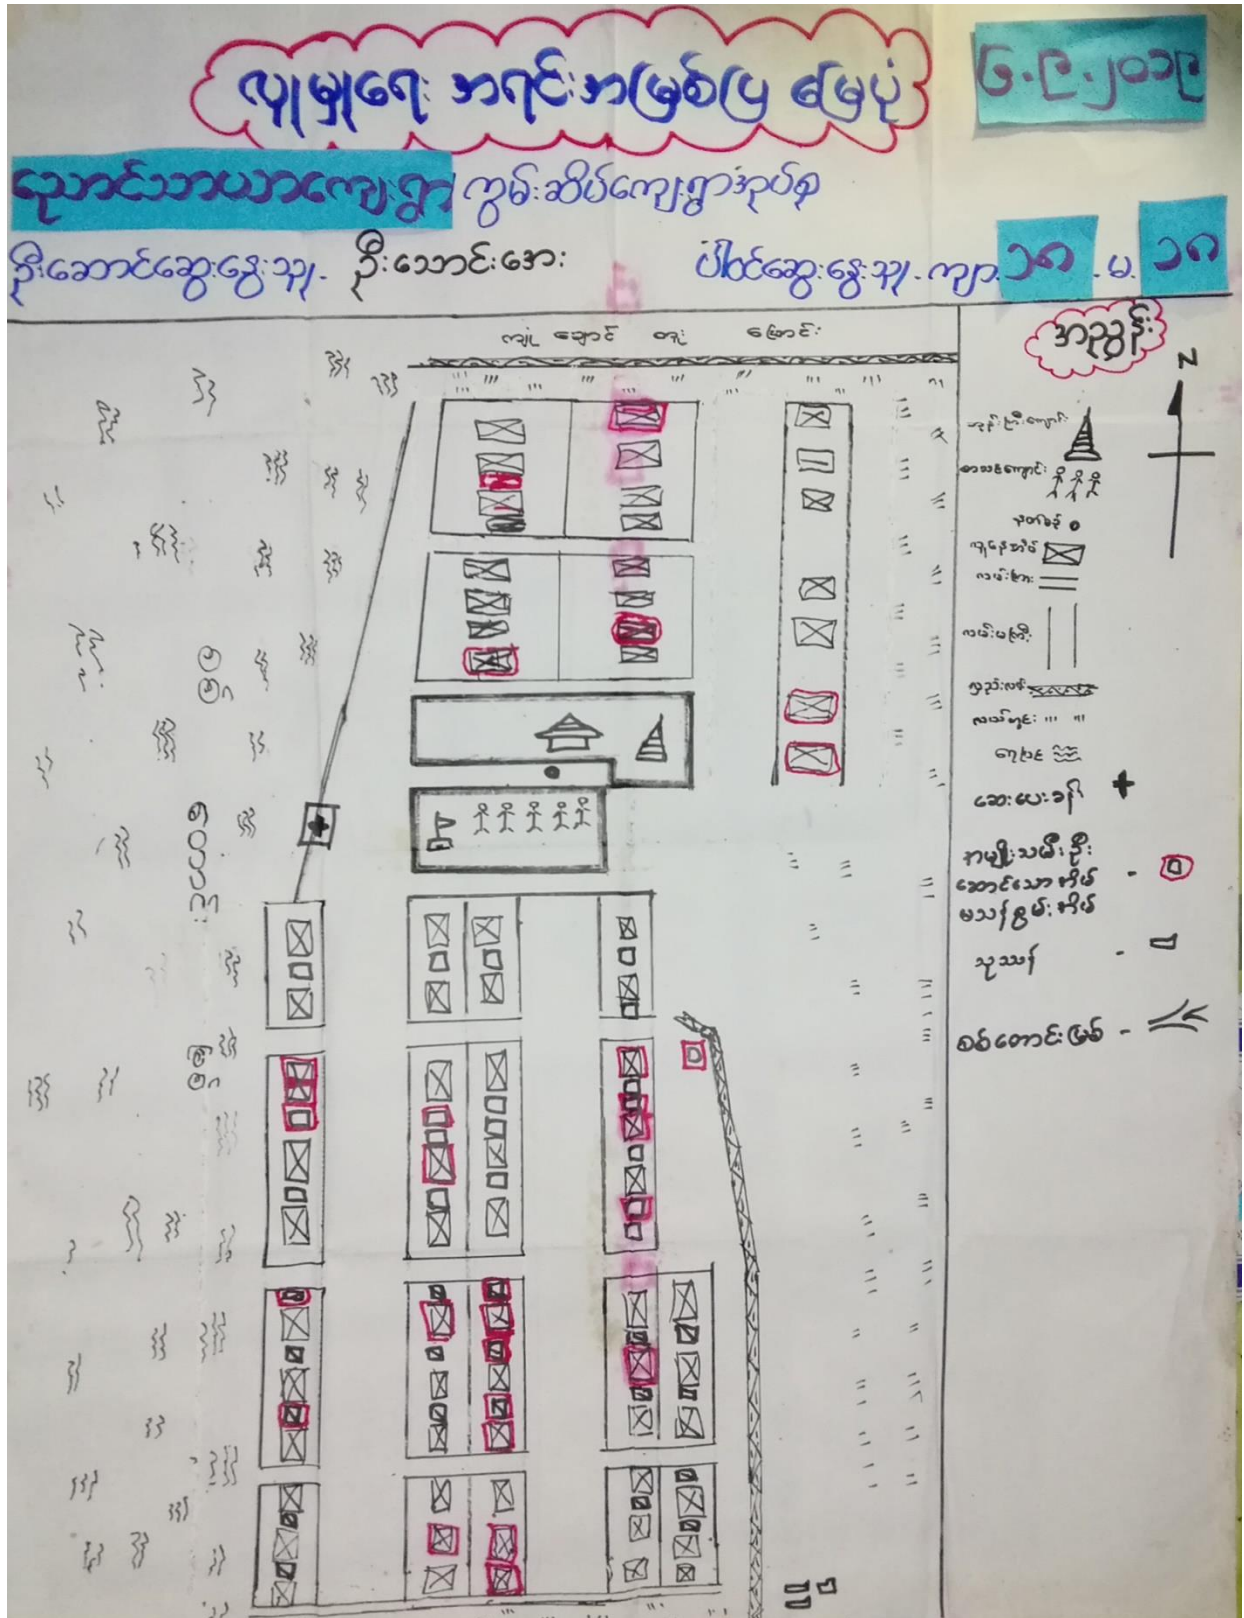 လူမှုရေး အရင်းအမြစ်ပြ မြေပုံ
၆.၉.၂၀၁၉
ညောင်သာယာကျေးရွာ ကွမ်းဆိပ်ကျေးရွာအုပ်စု
ဦးဆောင်ဆွေးနွေးသူ. ဦးသောင်းအေး ပါဝင်ဆွေးနွေးသူ. ကျား ၁၈ . မ. ၁၈
ကျုံ ချောင် တူး မြောင်း
အညွှန်း
N
ဘုန်းကြီးကျောင်း
စာသင်ကျောင်း
လူနေအိမ်
လမ်းကြား
လမ်းမကြီး
လှည်းလမ်း
လယ်ကွင်း
ရေပြင်
ဆေးပေးခန်း
အမျိုးသမီးဦး
ဆောင်သောအိမ် -
မသန်စွမ်းအိမ်
သုဿန် -
စစ်တောင်းမြစ် -